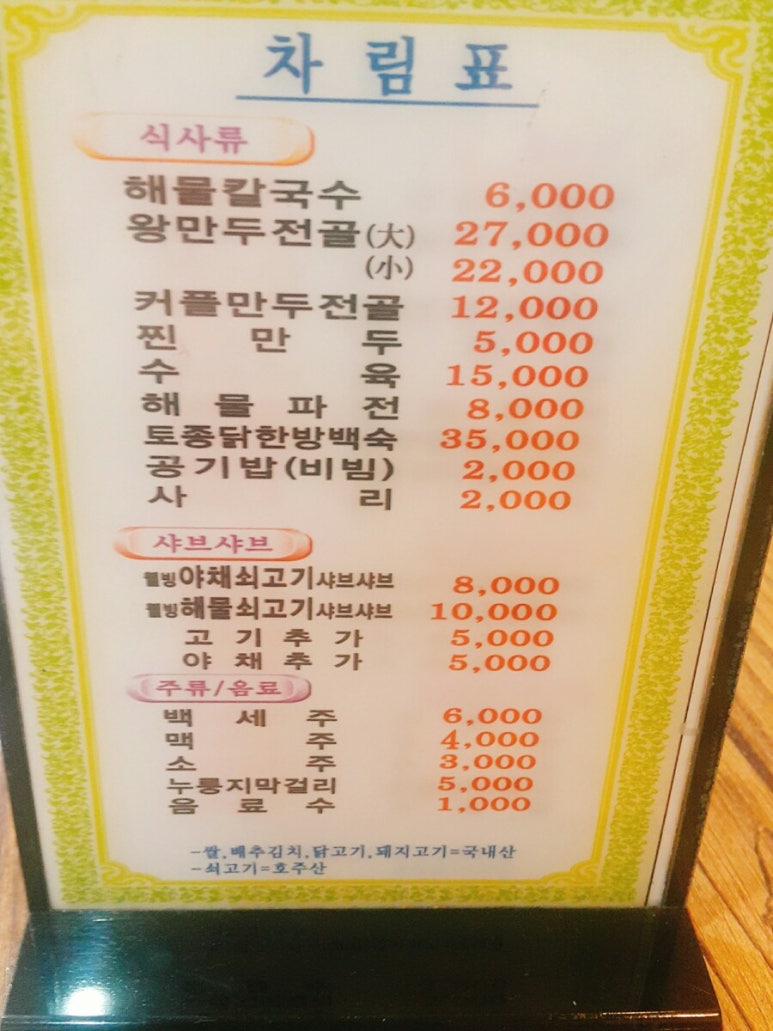 차림표
식사류
해물칼국수 6,000
왕만두전골(大) 27,000
(小) 22,000
커플만두전골 12,000
찐만두 5,000
수육 15,000
해물파전 8,000
토종닭한방백숙 35,000
공기밥(비빔) 2,000
사리 2,000
샤브샤브
웰빙야채쇠고기샤브샤브 8,000
웰빙해물쇠고기샤브샤브 10,000
고기추가 5,000
야채추가 5,000
주류/음료
백세주 6,000
맥주 4,000
소주 3,000
누룽지막걸리 5,000
음료수 1,000
-쌀,배추김치,닭고기,돼지고기=국내산
-쇠고기=호주산